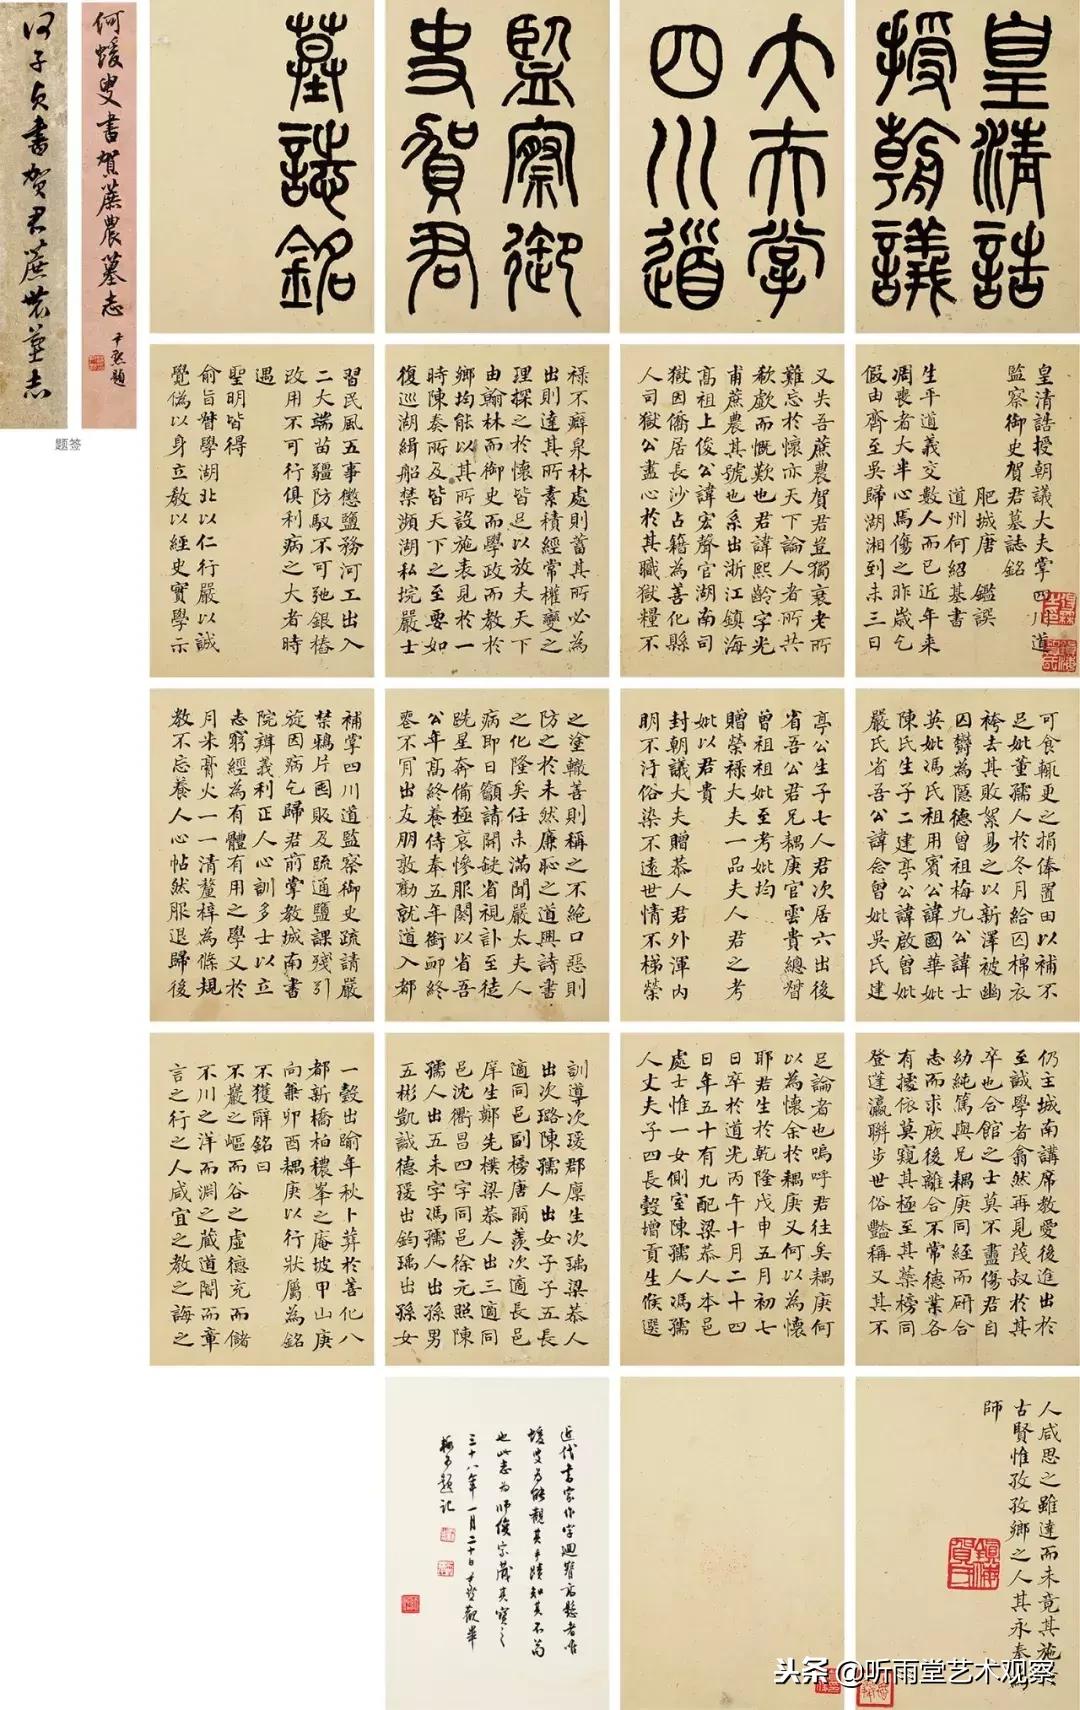 何子貞書賀君蔗農墓志
何蝯叟書賀蔗農墓志
尹默題
题签
皇清誥
授朝議
大夫掌
四川道
監察御
史賀君
墓誌銘
皇清誥授朝議大夫掌四川道
監察御史賀君墓誌銘
肥城唐 鑑譔
道州何紹基書
生平道義交數人而已近年来
凋喪者大半心焉傷之昨歲乞
假由齊至吳歸湖湘到未三日
又失吾蔗農賀君豈獨衰老所
難忘於懷亦天下論人者所共
欷歔而慨歎也君諱熙齡字光
甫蔗農其號也系出浙江鎮海
高祖上俊公諱宏聲官湖南司
獄因僑居長沙占籍為善化縣
人司獄公盡心於其職獄糧不
可食輒更之捐俸置田以補不
足妣董孺人於冬月給囚棉衣
袴去其敗絮易之以新澤被幽
囚鬱為隱德曾祖梅九公諱士
英妣馮氏祖用賓公諱國華妣
陳氏生子二建亭公諱啟曾妣
嚴氏省吾公諱念曾妣吳氏建
亭公生子七人君次居六出後
省吾公君兄耦庚官雲貴總督
曾祖祖妣至考妣均
贈榮祿大夫一品夫人君之考
妣以君貴
封朝議大夫贈恭人君外渾內
明不汙俗染不遠世情不梯榮
祿不癖泉林處則蓄其所必為
出則達其所素積經常權變之
理探之於懷皆足以放夫天下
由翰林而御史而學政而教於
鄉均能以其所設施表見於一
時陳奏所及皆天下之至要如
復巡湖緝船禁瀕湖私垸嚴士
習民風五事懲鹽務河工出入
二大端苗疆防馭不可弛銀樁
改用不可行俱利病之大者時
遇
聖明皆得
俞旨督學湖北以仁行嚴以誠
覺偽以身立教以經史實學示
之塗轍善則稱之不絕口惡則
防之於未然廉恥之道興詩書
之化隆矣任未滿聞嚴太夫人
病即日籲請開缺省視訃至徒
跣星奔備極哀慘服闋以省吾
公年高終養侍奉五年銜卹終
喪不肎出友朋敦勸就道入都
補掌四川道監察御史疏請嚴
禁鴉片囤販及疏通鹽課殘引
旋因病乞歸君前掌教城南書
院辨義利正人心訓多士以立
志窮經為有體有用之學又於
月米膏火一一清釐梓為條規
教不忘養人心帖然服退歸後
仍主城南講席教愛後進出於
至誠學者翕然再見茂叔於其
卒也合館之士莫不盡傷君自
幼純篤與兄耦庚同經而研合
志而求厥後離合不常德業各
有據依莫窺其極至其蘂榜同
登蓬瀛聯步世俗豔稱又其不
足論者也嗚呼君往矣耦庚何
以為懷余於耦庚又何以為懷
耶君生於乾隆戊申五月初七
日卒於道光丙午十月二十四
日年五十有九配梁恭人本邑
處士惟一女側室陳孺人馮孺
人丈夫子四長瑴增貢生候選
訓導次瑗郡廩生次瑀梁恭人
出次璐陳孺人出女子子五長
適同邑副榜唐爾羨次適長邑
庠生鄭先樸梁恭人出三適同
邑沈衢昌四字同邑徐元照陳
孺人出五未字馮孺人出孫男
五彬凱諴德瑗出鈞瑀出孫女
一瑴出踰年秋卜葬於善化八
都新橋柏穠峯之庵坡甲山庚
向兼卯酉耦庚以行狀屬為銘
不獲辭銘曰
不巖之嶇而谷之虛德充而儲
不川之洋而淵之蔵道闇而章
言之行之人咸宜之教之誨之
人咸思之雖達而未竟其施於
古賢惟孜孜鄉之人其永奉為
師
近代書家作字迴腕高懸者唯
蝯叟為能觀其手蹟知其不茍
也此志為師俊宗藏其寶之
三十八年一月二十日尹默觀畢
題記
头条 @听雨堂艺术观察